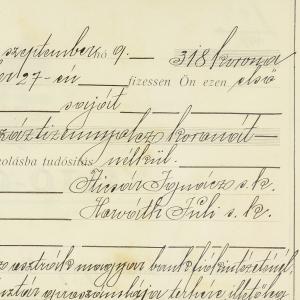 szeptember hó 9. 318 korona
27-én fizessen Ön ezen első
saját
száztizennyolcz koronát
tudósítás nélkül.
Ignácz s. k.
Horváth Juli s. k.
osztrák magyar bank fiókintézeténél
terhére illetőleg